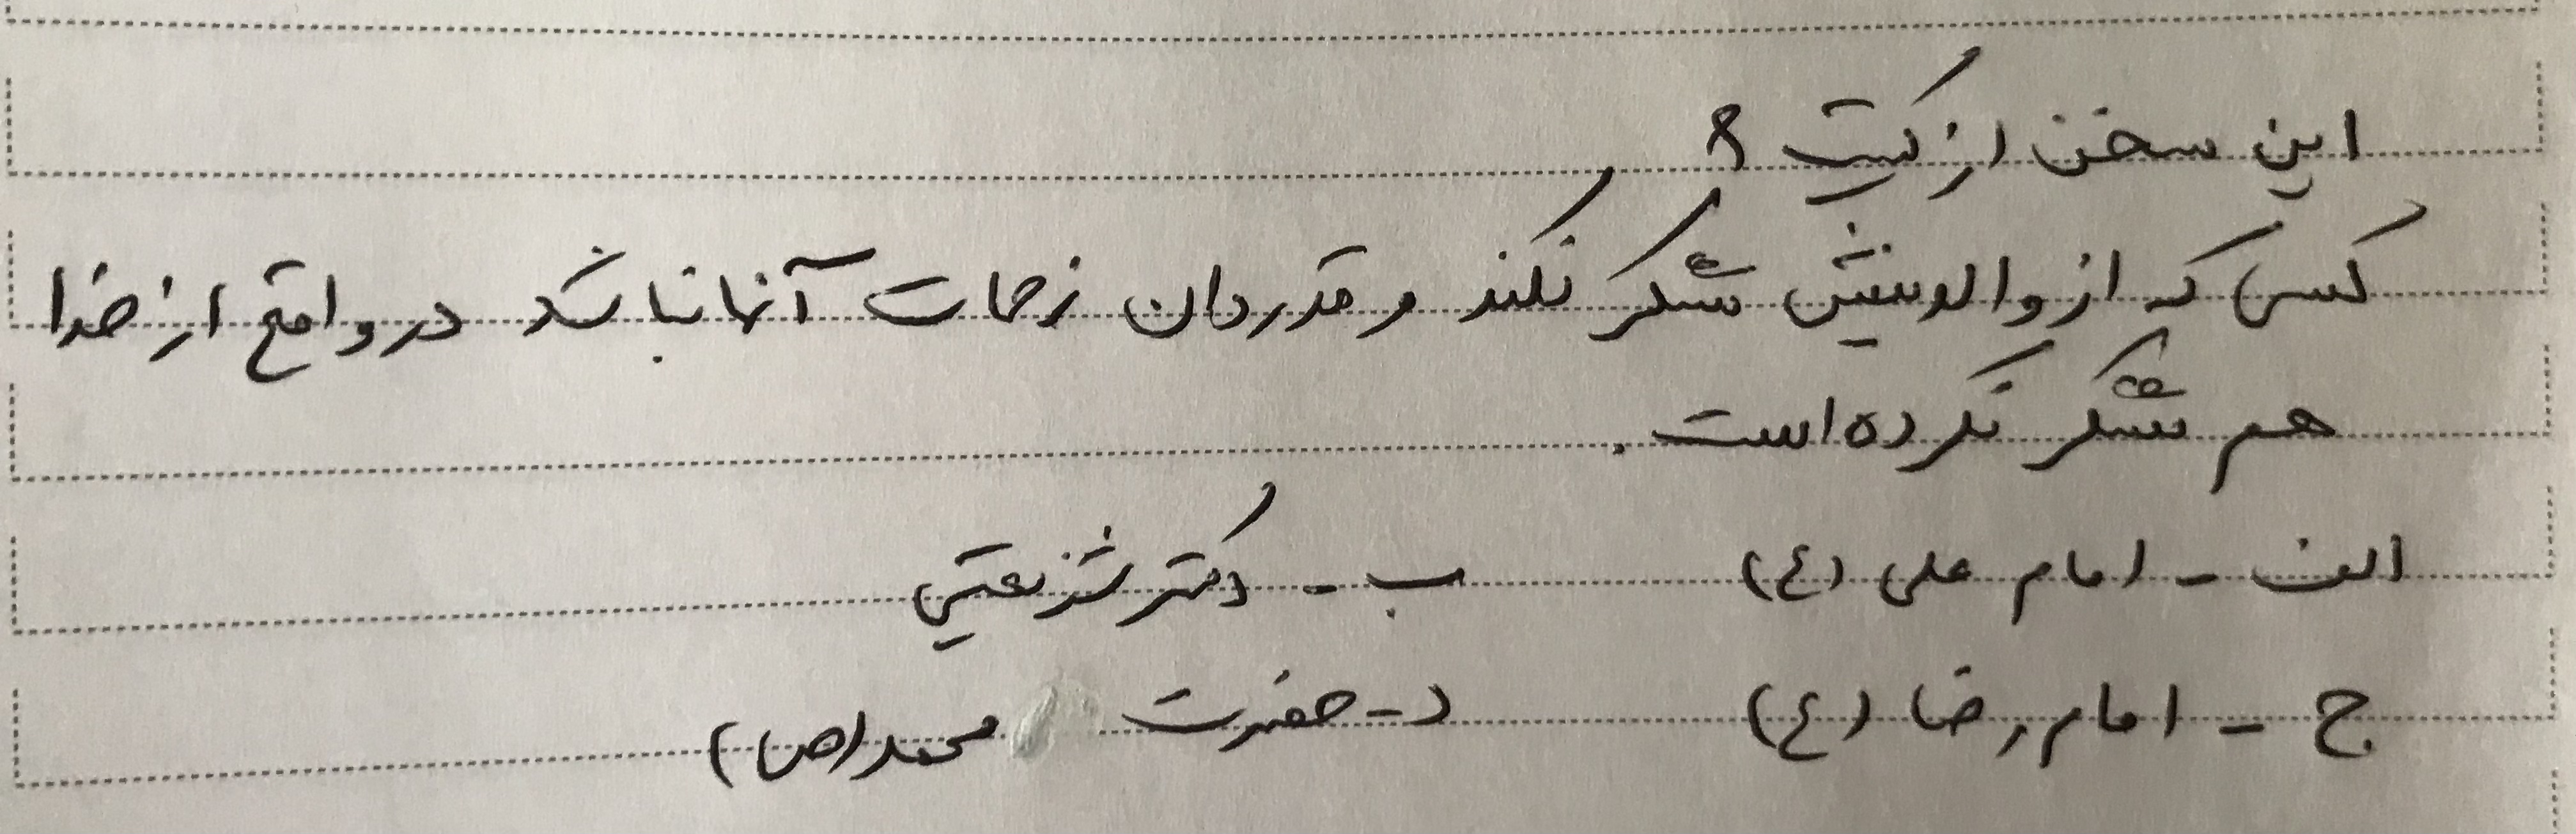 این سخن از کیست ؟
کسی که از والدینش تشکر نکند و قدردان زحمات آنها نباشد در واقع از خدا
هم تشکر نکرده است .
الف - امام علی (ع) ب - دکتر شریعتی
ج - امام رضا (ع) د - حضرت محمد (ص)